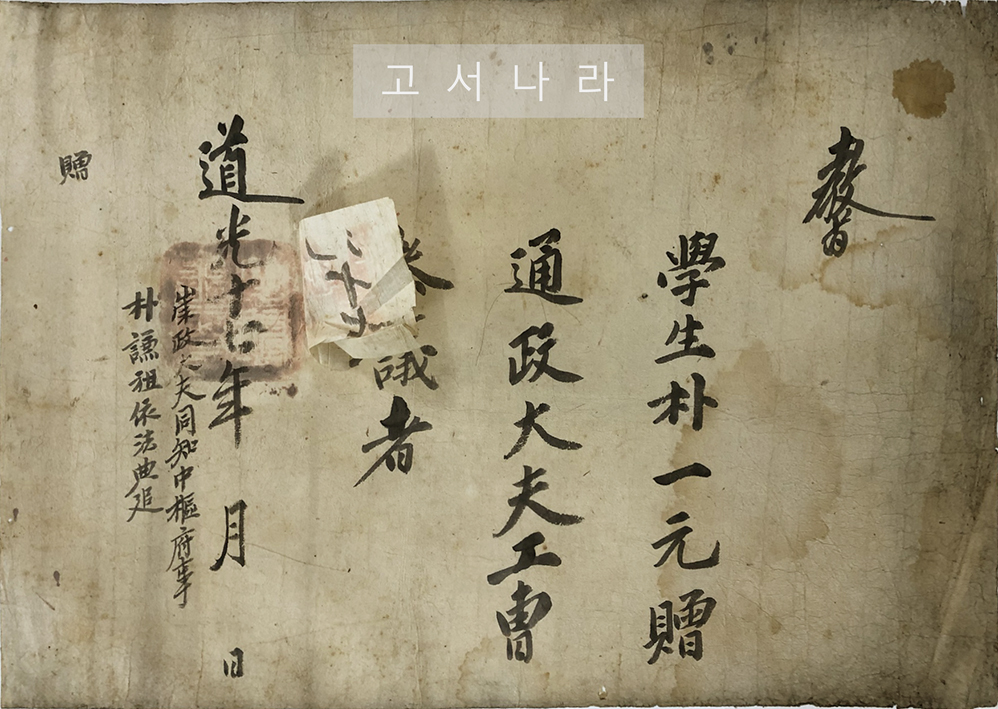 고서나라
敎旨
學生朴一元贈
通政大夫工曺
參議者
道光十七年 月 日
崇政大夫同知中樞府事
朴謙祖依法典追
贈